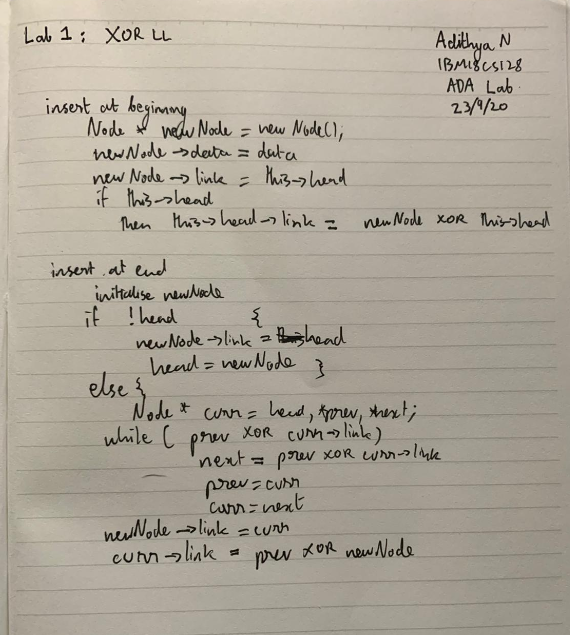 Lab 1 : XOR LL
Adithya N
1BM18CS128
ADA Lab
23/9/20
insert at beginning
Node * newNode = new Node();
newNode → data = data
newNode → link = this → head
if this → head
then this → head → link = newNode XOR this → head
insert at end
initialise newNode
if !head {
newNode → link = head
head = newNode }
else {
Node * curr = head, *prev, *next;
while ( prev XOR curr → link)
next = prev XOR curr → link
prev = curr
curr = next
newNode → link = curr
curr → link = prev XOR newNode